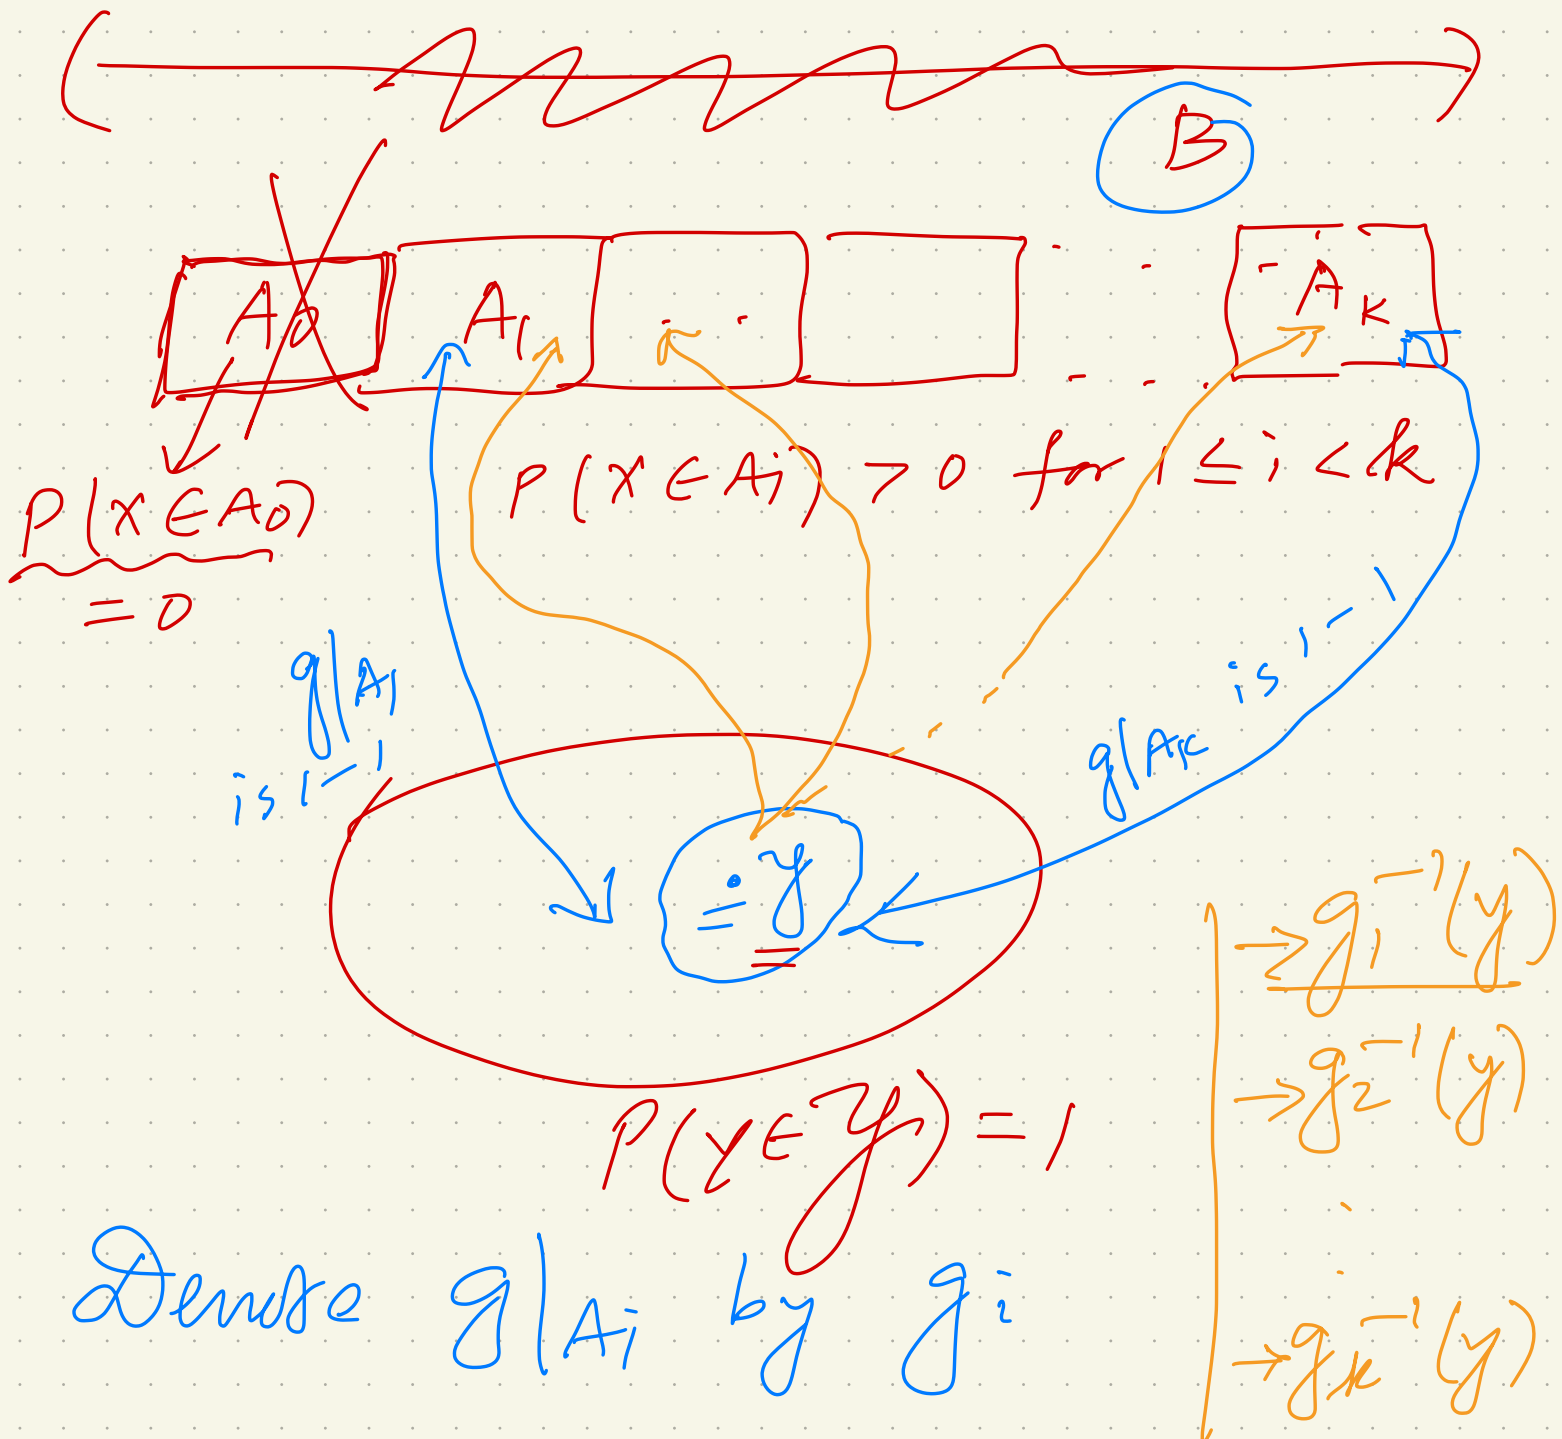 B
A₀ A₁ . . A_k
P(X ∈ A_i) > 0 for 1 ≤ i < k
P(X ∈ A₀)
= 0
g|A₁
is 1-1
g|A_k is 1-1
y
→ g₁⁻¹(y)
→ g₂⁻¹(y)
.
.
→ g_k⁻¹(y)
P(Y ∈ 𝒴) = 1
Denote g|A_i by g_i